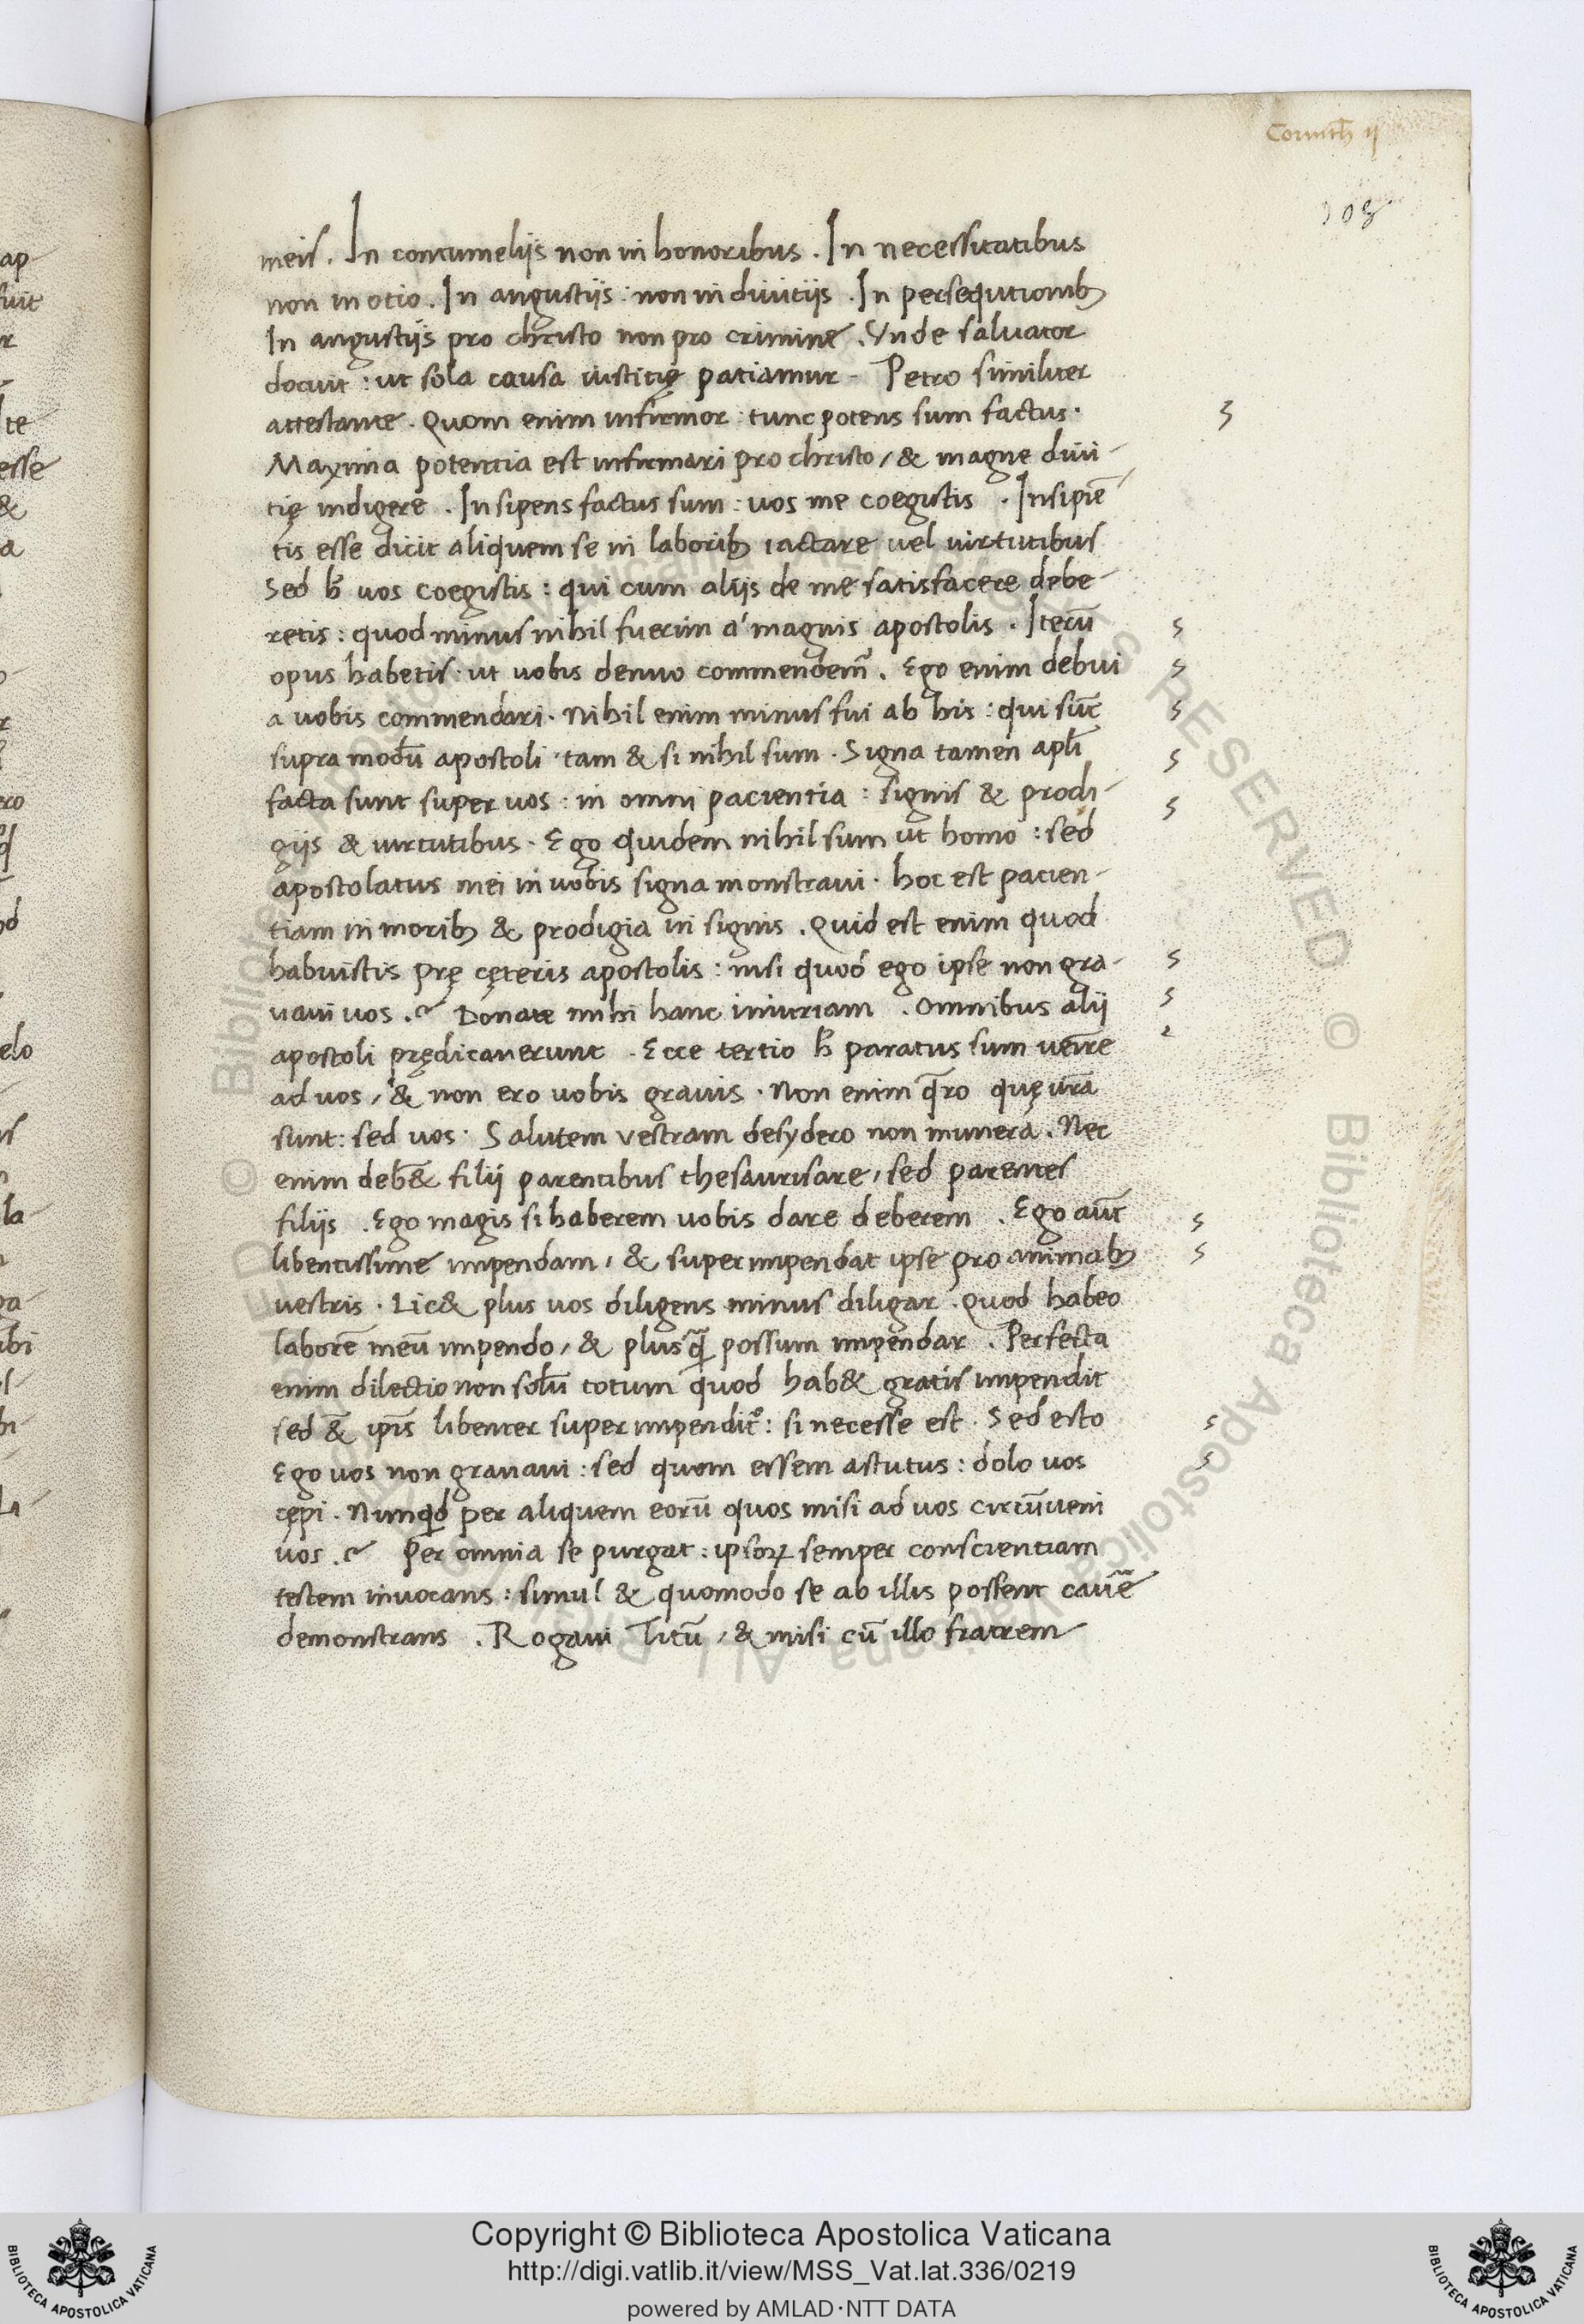 Corinth ij
108
meis. In contumelijs non in honoribus. In necessitatibus
non in otio. In angustijs: non in diuitijs. In persequtionib;
In angustijs pro christo non pro crimine. Vnde saluator
docuit: ut sola causa iustitię patiamur - Petro similiter
attestante. Quom enim infirmor: tunc potens sum factus.
Maxima potentia est infirmari pro christo, & magne diui-
tię indigere. Insipens factus sum: uos me coegistis. Insipiē
tis esse dicit aliquem se in laborib; iactare uel uirtutibus
Sed h̄ uos coegistis: qui cum alijs de me satisfacere debe-
retis: quod minus nihil fuerim a' magnis apostolis. Iterū
opus habetis: ut uobis denuo commendem̃. Ego enim debui
a uobis commendari. Nihil enim minus fui ab his: qui sūt
supra modū apostoli: tam & si nihil sum. Signa tamen apl̄i
facta sunt super uos: in omni pacientia: signis & prodi-
gijs & uirtutibus. Ego quidem nihil sum ut homo: sed
apostolatus mei in uobis signa monstraui. hoc est pacien-
tiam in morib; & prodigia in signis. Quid est enim quod
habuistis prę cęteris apostolis: nisi quod ego ipse non gra-
uaui uos.? Donate mihi hanc iniuriam. Omnibus alij
apostoli prędicauerunt. Ecce tertio h̄ paratus sum uenīre
ad uos, & non ero uobis grauis. Non enim q̄ro quę ur̄a
sunt: sed uos. Salutem vestram desydero non munera. Nec
enim deb̄& filij parentibus thesaurisare, sed parentes
filijs. Ego magis si haberem uobis dare deberem. Ego aūt
libentissime impendam, & superimpendat ipse pro animab;
uestris. Lic& plus uos diligens minus diligar. Quod habeo
laborē meū impendo, & plusq̄ possum impendar. Perfecta
enim dilectio non solū totum quod hab& gratis impendit
sed &̄ ip̄is libenter superimpendit᷑: si necesse est. Sed esto
Ego uos non grauaui: sed quom essem astutus: dolo uos
cępi. Nunqd per aliquem eorū quos misi ad uos circūueni
uos.? Per omnia se purgat: ipsoꝝ semper conscientiam
testem inuocans: simul & quomodo se ab illis possent cauē̃
demonstrans. Rogaui Titū, & misi cū illo fratrem
Copyright © Biblioteca Apostolica Vaticana
http://digi.vatlib.it/view/MSS_Vat.lat.336/0219
powered by AMLAD·NTT DATA